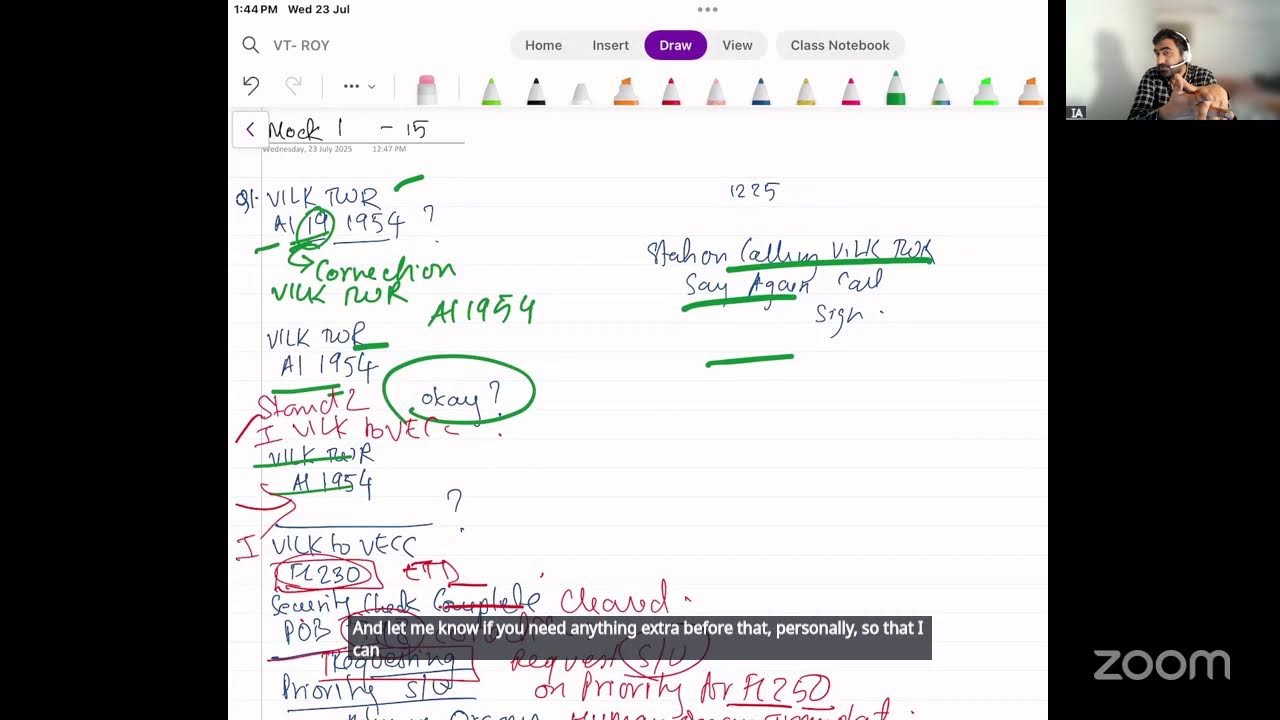 1:44PM Wed 23 Jul
VT- ROY
Home Insert Draw View Class Notebook
Mock 1 - 15
Wednesday, 23 July 2025 12:47 PM
Q1. VILK TWR
AI 19 1954 ?
Correction
VILK TWR
AI 1954
VILK TWR
AI 1954
okay ?
Stand 2
I VILK to VECC
VILK TWR
AI 1954
?
I VILK to VECC
FL230 ETD
Security Check Complete Cleared.
POB
Requesting Request S/U
Priority S/U on Priority for FL250
Human Organ
1225
Station Calling VILK TWR
Say Again Call
Sign.
And let me know if you need anything extra before that, personally, so that I
can
IA
zoom